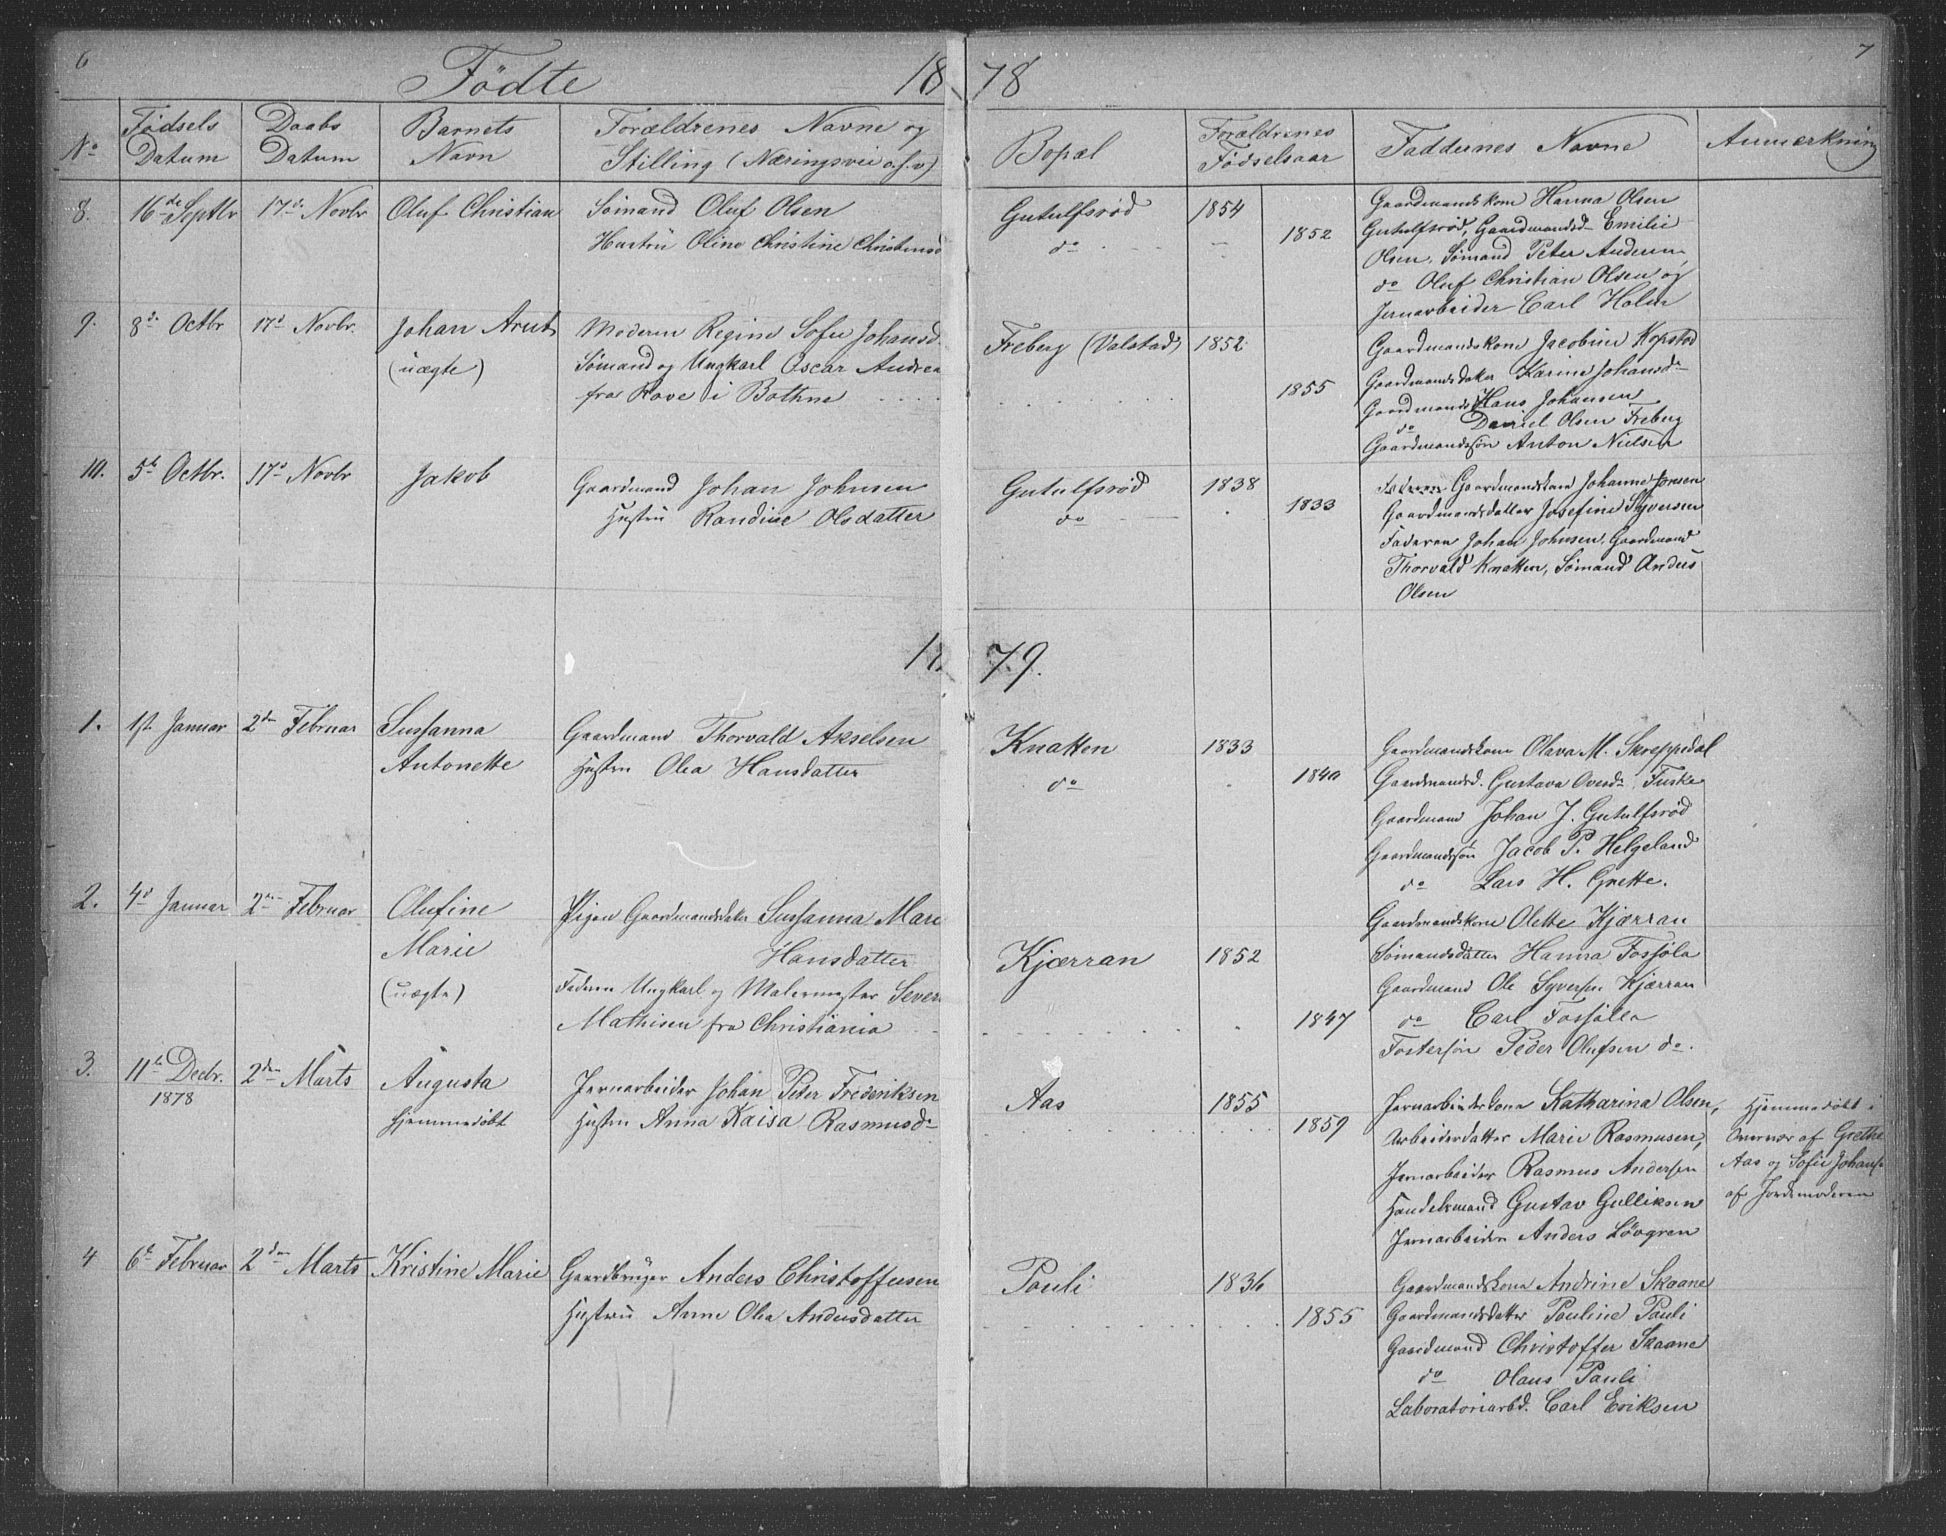 6
Fødte
18 78
7
No
Fødsels Datum
Daabs Datum
Barnets Navn
Forældrenes Navne og
Stilling (Næringsvei o.s.v)
Bopæl
Forældrenes Fødselsaar
Faddernes Navne
Anmærkning
8.
16de Septbr
17d Novbr
Oluf Christian
Sømand Oluf Olsen
Hustru Oline Christine
Gutulfsrød
do
1854
1852
Gaardmandskone Hanna Olsen
Gutulfsrød, Gaardmandsd Emilie
Olsen, Sømand Peter Andersen
do Oluf Christian Olsen og
Jernarbeider Carl Holm
9.
8d Octbr
17d Novbr.
Johan Arnt
(uægte)
Moderen Regine Sofie Johansd.
Sømand og Ungkarl Oscar
fra Rove i Bothne
Freberg (Valstad)
1852
1855
Gaardmandskone Jacobine Kopstad
Gaardmandsdatter Karine Johansd
Gaardmands Hans Johansen
do Daniel Olsen Freberg
Gaardmandssøn Anton Nielsen
10.
5t Octbr.
17d Novbr
Jakob
Gaardmand Johan Johnsen
Hustru Randine Olsdatter
Gutulfsrød
do
1838
1833
Gaardmandskone Johanne Jonsen
Gaardmandsdatter Josefine Syversen
Faderen Johan Johnsen, Gaardmand
Thorvald Knatten, Sømand Anders
Olsen
79.
1.
1st. Januar
2den Februar
Sussanna
Antonette
Gaardmand Thorvald Akselsen
Hustru Olea Hansdatter
Knatten
do
1833
1840
Gaardmandskone Olava M. Skreppedal
Gaardmandsd. Gustava Fuske
Gaardmand Johan J. Gutulfsrød
Gaardmandssøn Jacob P. Helgeland
do Lars H. Grette.
2.
4d Januar
2den Februar
Olufine
Marie
(uægte)
Pigen Gaardmandsdatter Sussanna
Hansdatter
Faderen Ungkarl og Malermester
Mathisen fra Christiania
Kjærran
1852
1847
Gaardmandskone Olette Kjærran
Sømandsdatter Hanna Fossjøla
Gaardmand Ole Syversen Kjærran
do Carl
Fostersøn Peder Olufsen do.
3.
11te Decbr.
1878
2den Marts
Augusta
Hjemmedøbt
Jernarbeider Johan Peter Frederiksen
Hustru Anna Kaisa Rasmusd
Aas
1855
1859
Jernarbeiderkone Katharina Olsen,
Arbeiderdatter Marie Rasmusen,
Jernarbeider Rasmus Andersen
Handelsmand Gustav Gulliksen
Jernarbeider Anders Løvgren
Hjemmedøbt i
Overvær af Grethe
Aas og Sofie Johans
af Jordemoderen
4
6t Februar
2den Marts
Kristine Marie
Gaardbruger Anders Christoffersen
Hustru Anne Olea Andersdatter
Pauli
1836
1855
Gaardmandskone Andrine Skaane
Gaardmandsdatter Pauline Pauli
Gaardmand Christoffer Skaane
do Olaus Pauli
Laboratoriarbd. Carl Eriksen